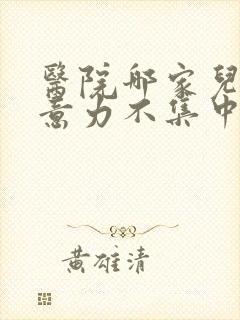 醫院哪家兒
意力不集中
黃雄清